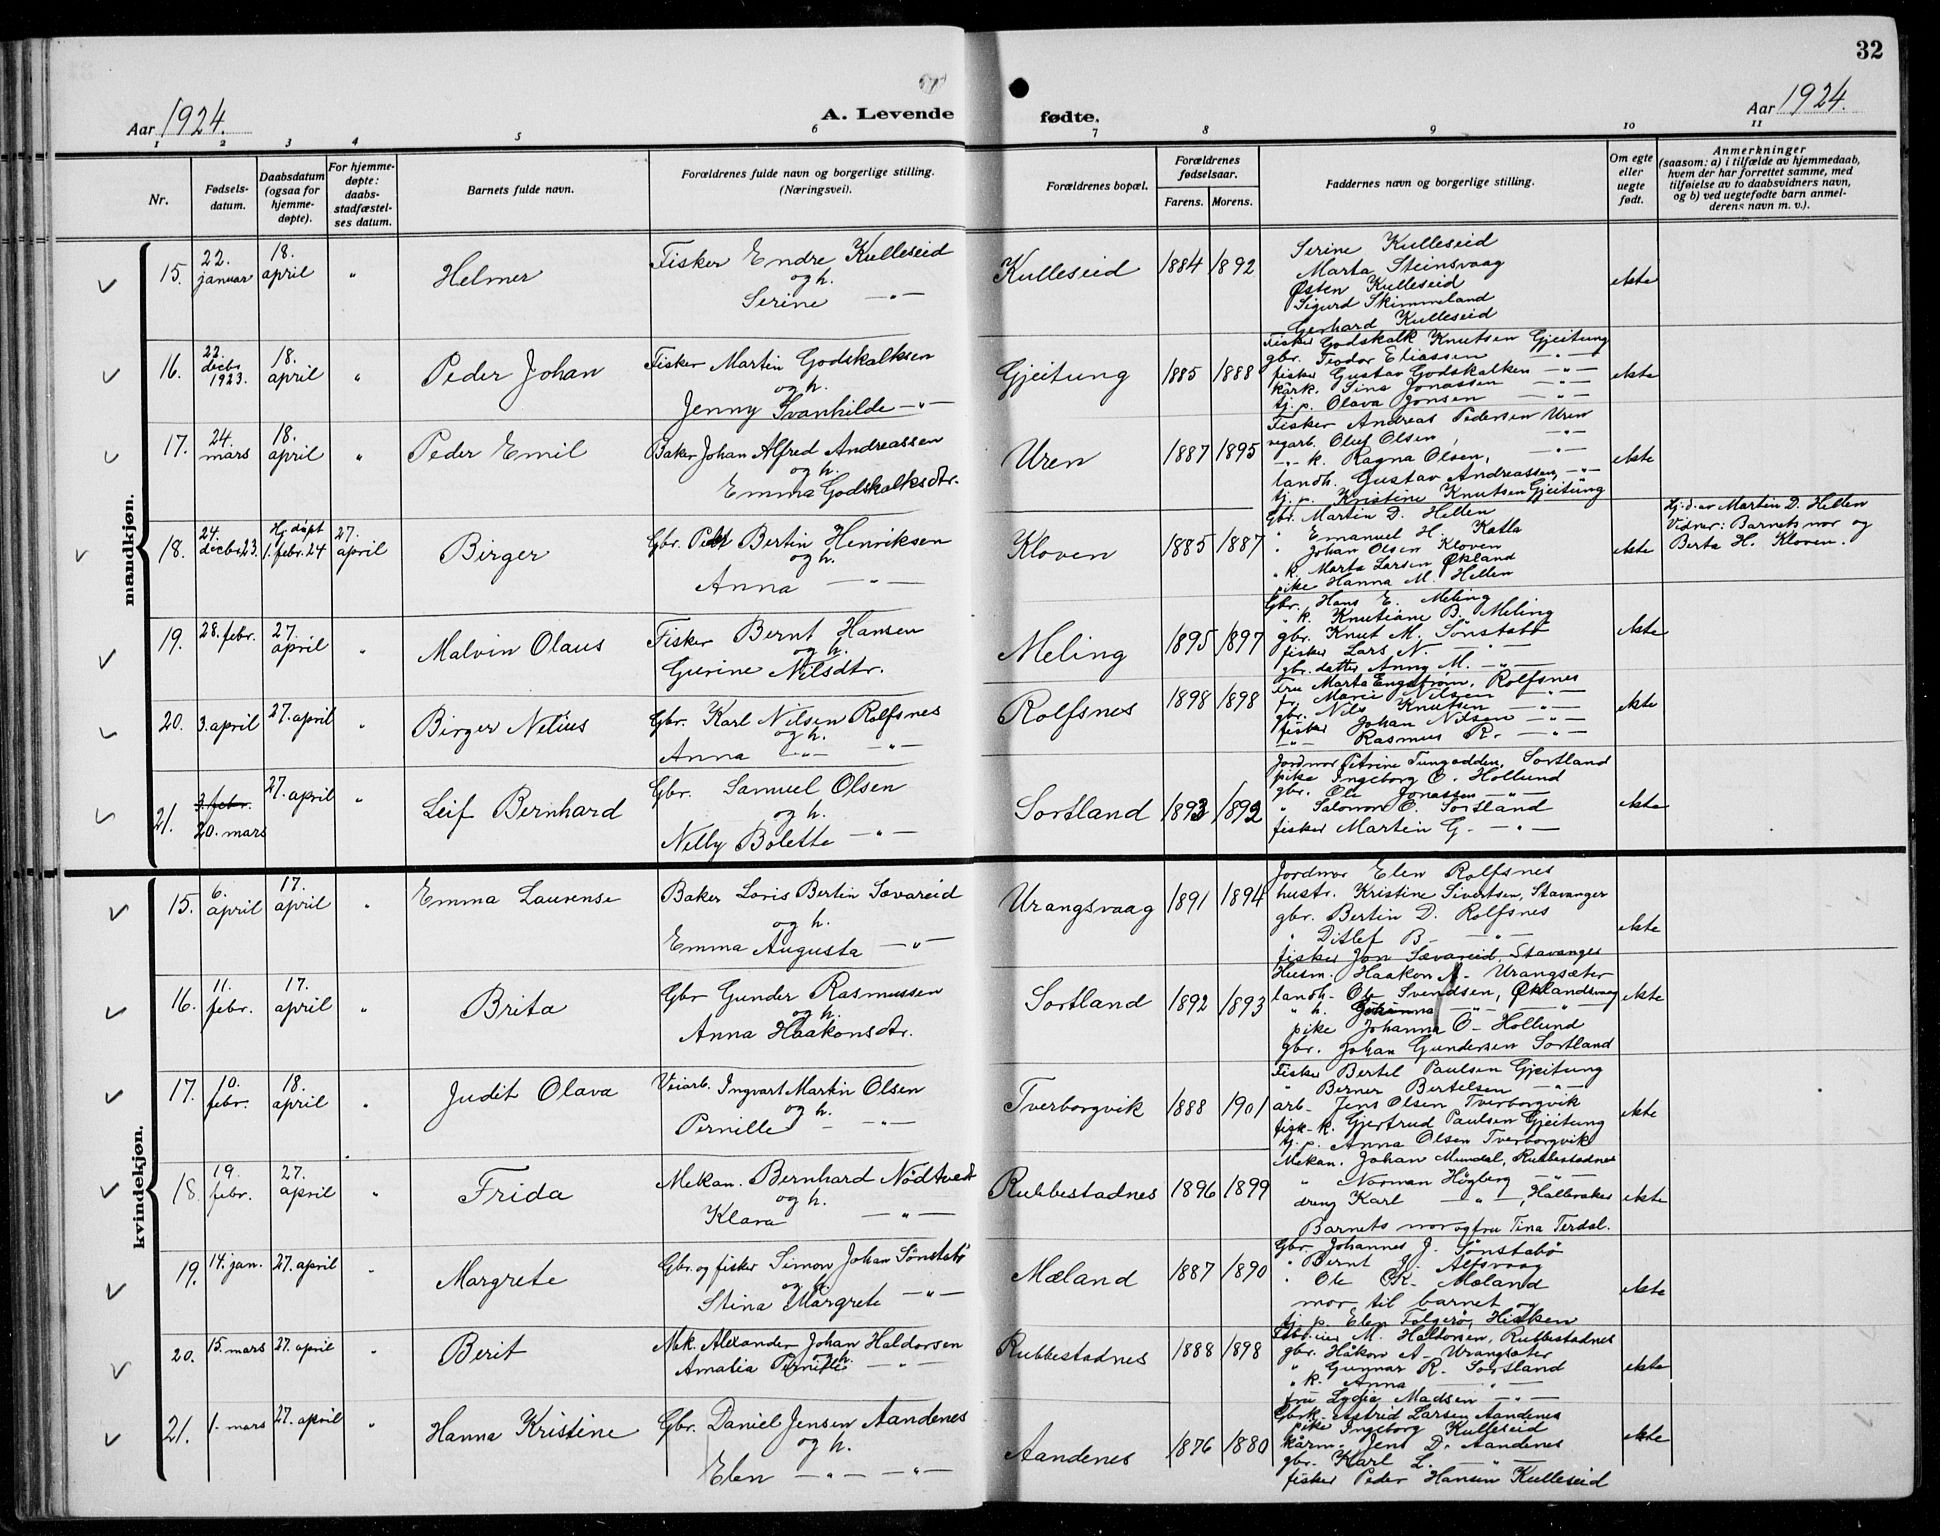 32
Aar 1924.
A. Levende fødte.
Aar 1924.
1 2 3 4 5 6 7 8 9 10 11
Nr.
Fødsels-
datum.
Daabsdatum
(ogsaa for
hjemme-
døpte).
For hjemme-
døpte:
daabs-
stadfæstel-
ses datum.
Barnets fulde navn.
Forældrenes fulde navn og borgerlige stilling.
(Næringsvei).
Forældrenes bopæl.
Forældrenes
fødselsaar.
Farens. Morens.
Faddernes navn og borgerlige stilling.
Om egte
eller
uegte
født.
Anmerkninger
(saasom: a) i tilfælde av hjemmedaab,
hvem der har forrettet samme, med
tilføielse av to daabsvidners navn,
og b) ved uegtefødte barn anmel-
derens navn m. v.).
mandkjøn.
15. 22. januar 18. april " Helmer
Fisker Endre Kulleseid
og h.
Serine —"—
Kulleseid 1884 1892
Serine Kulleseid
Marta Steinsvaag
Østen Kulleseid
Sigurd Skimmeland
Gerhard Kulleseid
ekte
16. 22. decbr 1923. 18. april " Peder Johan
Fisker Martin Godskalksen
og h.
Jenny Svanhilde —"—
Gjeitung 1885 1888
Fisker Godskalk Knutsen Gjeitung
gbr. Teodor Eliassen —"—
fisker Gustav Godskalken —"—
kark. Sina Jonassen —"—
tj. p. Olava Jonsen —"—
ekte
17. 24. mars 18. april " Peder Emil
Baker Johan Alfred Andreassen
og h.
Emma Godskalksdtr.
Uren 1887 1895
Fisker Andreas Pedersen Uren
vegarb. Oluf Olsen, —"—
—"— k. Ragna Olsen, —"—
landh. Gustav Andreassen, —"—
tj. p. Kristine Knutsen Gjeitung
ekte
18. 24. decbr 23. Hj. døpt 1. febr. 24 27. april Birger
Gbr. Peder Bertin Henriksen
og h.
Anna —"—
Kloven 1885 1887
Gbr. Martin D. Hellen
" Emanuel H. Katla
" Johan Olsen Kloven
" k. Marta Larsen Økland
pike Hanna M. Hellen
ekte
Hj. d. av Martin D. Hellen
Vidner: Barnets mor og
Berta H. Kloven.
19. 28. febr. 27. april " Malvin Olaus
Fisker Bernt Hansen
og h.
Gurine Nilsdtr.
Meling 1895 1897
Gbr. Hans E. Meling
" k. Knutiane B. Meling
gbr. Knut M. Sønstabø
fisker Lars N. —"—
gbr. datter Anny M. —"—
ekte
20. 3. april 27. april " Birger Nelius
Gbr. Karl Nilsen Rolfsnes
og h.
Anna —"— —"—
Rolfsnes 1898 1898
Fru Marta Engstrøm, Rolfsnes
f. Marie Nilsen —"—
gbr. Nils Knutsen —"—
fisker Johan Nilsen —"—
—"— Rasmus R. —"—
ekte
21. 3. febr. 20. mars 27. april " Leif Bernhard
Gbr. Samuel Olsen
og h.
Nelly Bolette —"—
Sortland 1893 1892
Jordmor Petrine Tungodden, Sortland
pike Ingeborg O. Hollund
gbr. Ole Jonassen —"—
" Salomon O. Sortland
fisker Martin G. —"—
ekte
kvindekjøn.
15. 6. april 17. april " Emma Laurense
Baker Loris Bertin Sævareid
og h.
Emma Augusta —"—
Urangsvaag 1891 1894
Jordmor Elen Rolfsnes
hustr. Kristine Sivertsen, Stavanger
gbr. Bertin D. Rolfsnes
" Ditlef B. —"—
fisker Jon Sævareid, Stavanger
ekte
16. 11. febr. 17. april " Brita
Gbr Gunder Rasmussen
og h.
Anna Haakonsdtr.
Sortland 1892 1893
Husm. Haakon A. Urangsæter
landh. Ole Svendsen, Øklandsvaag
" h. Johanna —"— —"—
pike Johanna O. Hollund
gbr. Johan Gundersen Sortland
ekte
17. 10. febr. 18. april " Judit Olava
Veiarb. Ingvart Martin Olsen
og h.
Pernille —"—
Tverborgvik 1888 1901
Fisker Bertel Paulsen Gjeitung
" Berner Bertelsen —"—
arb. Jens Olsen Tverborgvik
fisk. k. Gjertrud Paulsen Gjeitung
tj. p. Anna Olsen Tverborgvik
ekte
18. 19. febr. 27. april " Frida
Mekan. Bernhard Nødtvedt
og h.
Klara —"—
Rubbestadnes 1896 1899
Mekan. Johan Mundal, Rubbestadnes
" Norman Høgberg —"—
dreng Karl —"—, Halbraker
Barnets mor og fru Tina Terdal.
ekte
19. 14. jan. 27. april " Margrete
Gbr. og fisker Simon Johan Sønstabø
og h.
Stina Margrete —"—
Mæland 1887 1890
Gbr. Johannes J. Sønstabø
" Bernt J. Alfsvaag
" Ole K. Mæland
mor til barnet og
tj. p. Elen Folgerø, Hisken
ekte
20. 15. mars 27. april " Berit
Mek. Alexander Johan Haldorsen
og h.
Amalia Pernille —"—
Rubbestadnes 1888 1898
M. Haldorsen, Rubbestadnes
gbr. Håkon A. Urangsæter
" Gunnar R. Sortland
" k. Anna —"—
fru Lydia Madsen —"—
ekte
21. 1. mars 27. april " Hanna Kristine
Gbr. Daniel Jensen Aandenes
og h.
Elen —"— —"—
Aandenes 1876 1880
Gbrk. Astrid Larsen Aandenes
pike Ingeborg Kulleseid
kårm. Jens D. Aandenes
gbr. Karl L. —"—
fisker Peder Hansen Kulleseid
ekte